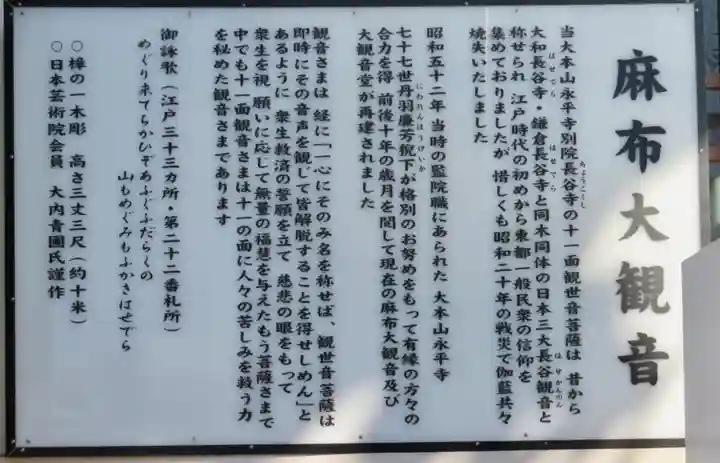 麻布大観音
当大本山永平寺別院長谷寺の十一面観世音菩薩は 昔から
大和長谷寺・鎌倉長谷寺と同木同体の日本三大長谷観音と
称せられ 江戸時代の初めから東都一般民衆の信仰を
集めておりましたが 惜しくも昭和二十年の戦災で伽藍共々
焼失いたしました
昭和五十二年 当時の監院職にあられた 大本山永平寺
七十七世丹羽廉芳猊下が格別のお努めをもって有縁の方々の
合力を得 前後十年の歳月を関して現在の麻布大観音及び
大観音堂が再建されました
観音さまは 経に「一心にそのみ名を称せば、観世音菩薩は
即時にその音声を観じて皆解脱することを得せしめん」と
あるように 衆生救済の誓願を立て 慈悲の眼をもって
衆生を視 願いに応じて無量の福慧を与えたもう菩薩さまで
中でも十一面観音さまは十一の面に人々の苦しみを救う力
を秘めた観音さまであります
御詠歌（江戸三十三カ所・第二十二番札所）
めぐり来てちかひぞあふぐふだらくの
山もめぐみもふかきはせでら
○樟の一木彫 高さ三丈三尺（約十米）
○日本芸術院会員 大内青圃氏謹作